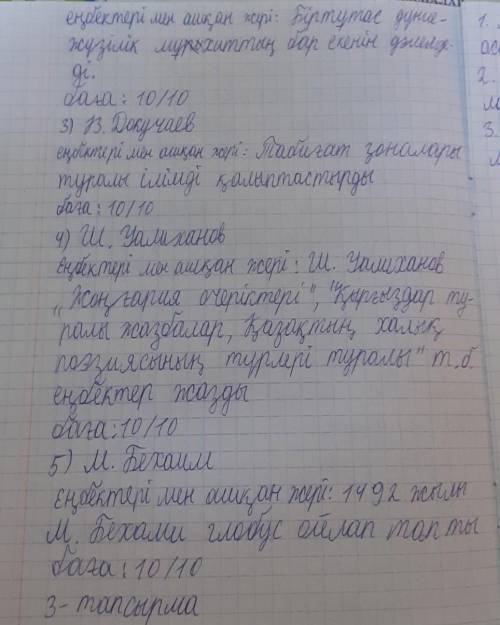 еңбектері мен ашқан жері: Біртұтас дүние-
жүзілік мұхиттың бар екенін дәлелде-
ді.
баға: 10/10
3) В. Докучаев
еңбектері мен ашқан жері: Табиғат зоналары
туралы ілімді қалыптастырды
баға: 10/10
4) Ш. Уалиханов
Еңбектері мен ашқан жері: Ш. Уалиханов
„Жоңғария очерістері", "Қырғыздар ту-
ралы жазбалар, Қазақтың халық
поэзиясының түрлері туралы" т.б.
еңбектер жазды
баға: 10/10
5) М. Бехаим
Еңбектері мен ашқан жері: 1492 жылы
М. Бехами глобус ойлап тапты
баға: 10/10
3- тапсырма
1.
ас
2.
3.